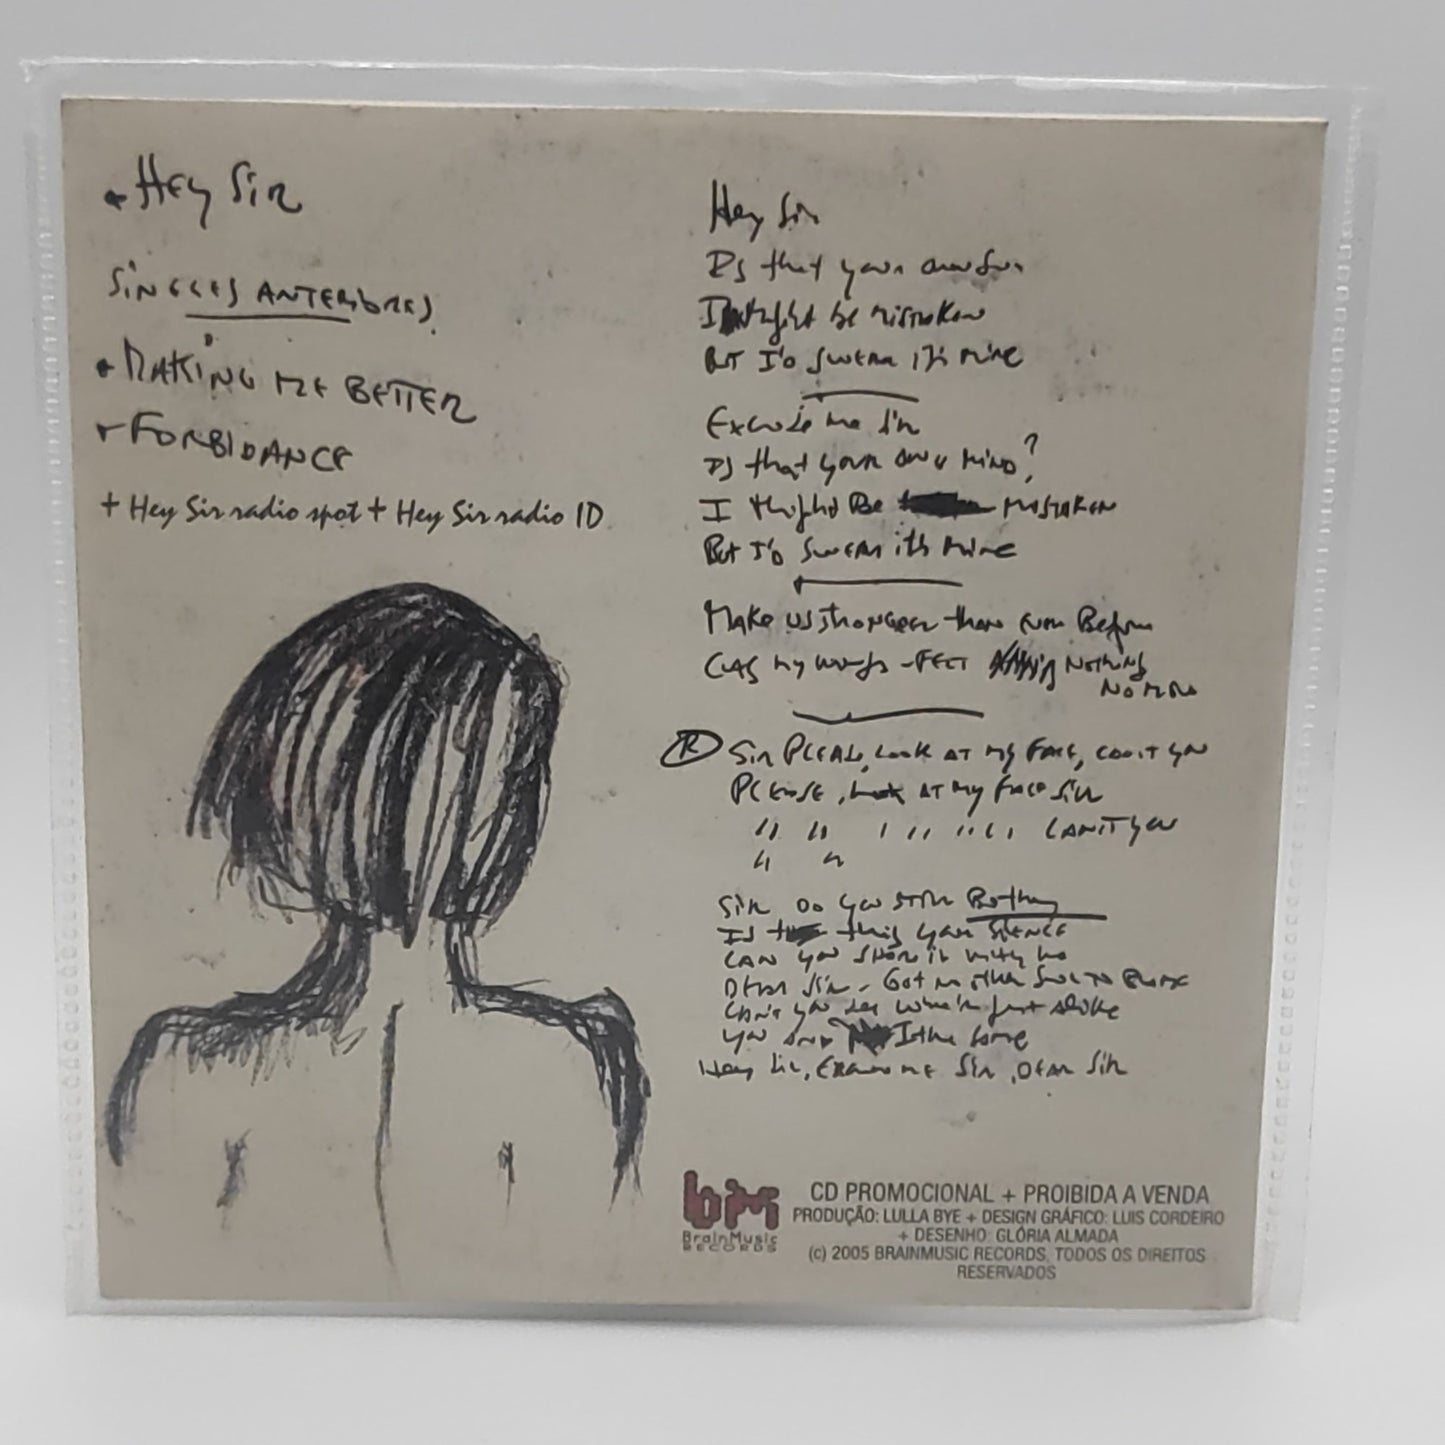 Hey Sir
SINGLES ANTERIORES
MAKING ME BETTER
FORBIDANCE
+ Hey Sir radio spot + Hey Sir radio ID
Hey Sir
Is that your own
I might be mistaken
BUT I'D SWEAR IT'S MINE
Excuse me Sir
Is that your own MIND?
I Be MISTAKEN
But I'D SWEAR it's MINE
Make us stronger than ever Before
my wings - FEET NOTHING
NO MORE
R SIR PLEASE, LOOK AT MY FACE, CAN'T YOU
PLEASE, look AT MY FACE SIR
" " " " " " CAN'T YOU
" "
SIR DO YOU STILL
Is this your SILENCE
CAN YOU SHARE it with me
DEAR SIR - Got no other
CAN'T you see we're just alike
you and I the same
Hey Sir, EXCUSE ME SIR, DEAR SIR
bm
BrainMusic
RECORDS
CD PROMOCIONAL + PROIBIDA A VENDA
PRODUÇÃO: LULLA BYE + DESIGN GRÁFICO: LUIS CORDEIRO
+ DESENHO: GLÓRIA ALMADA
(c) 2005 BRAINMUSIC RECORDS, TODOS OS DIREITOS
RESERVADOS